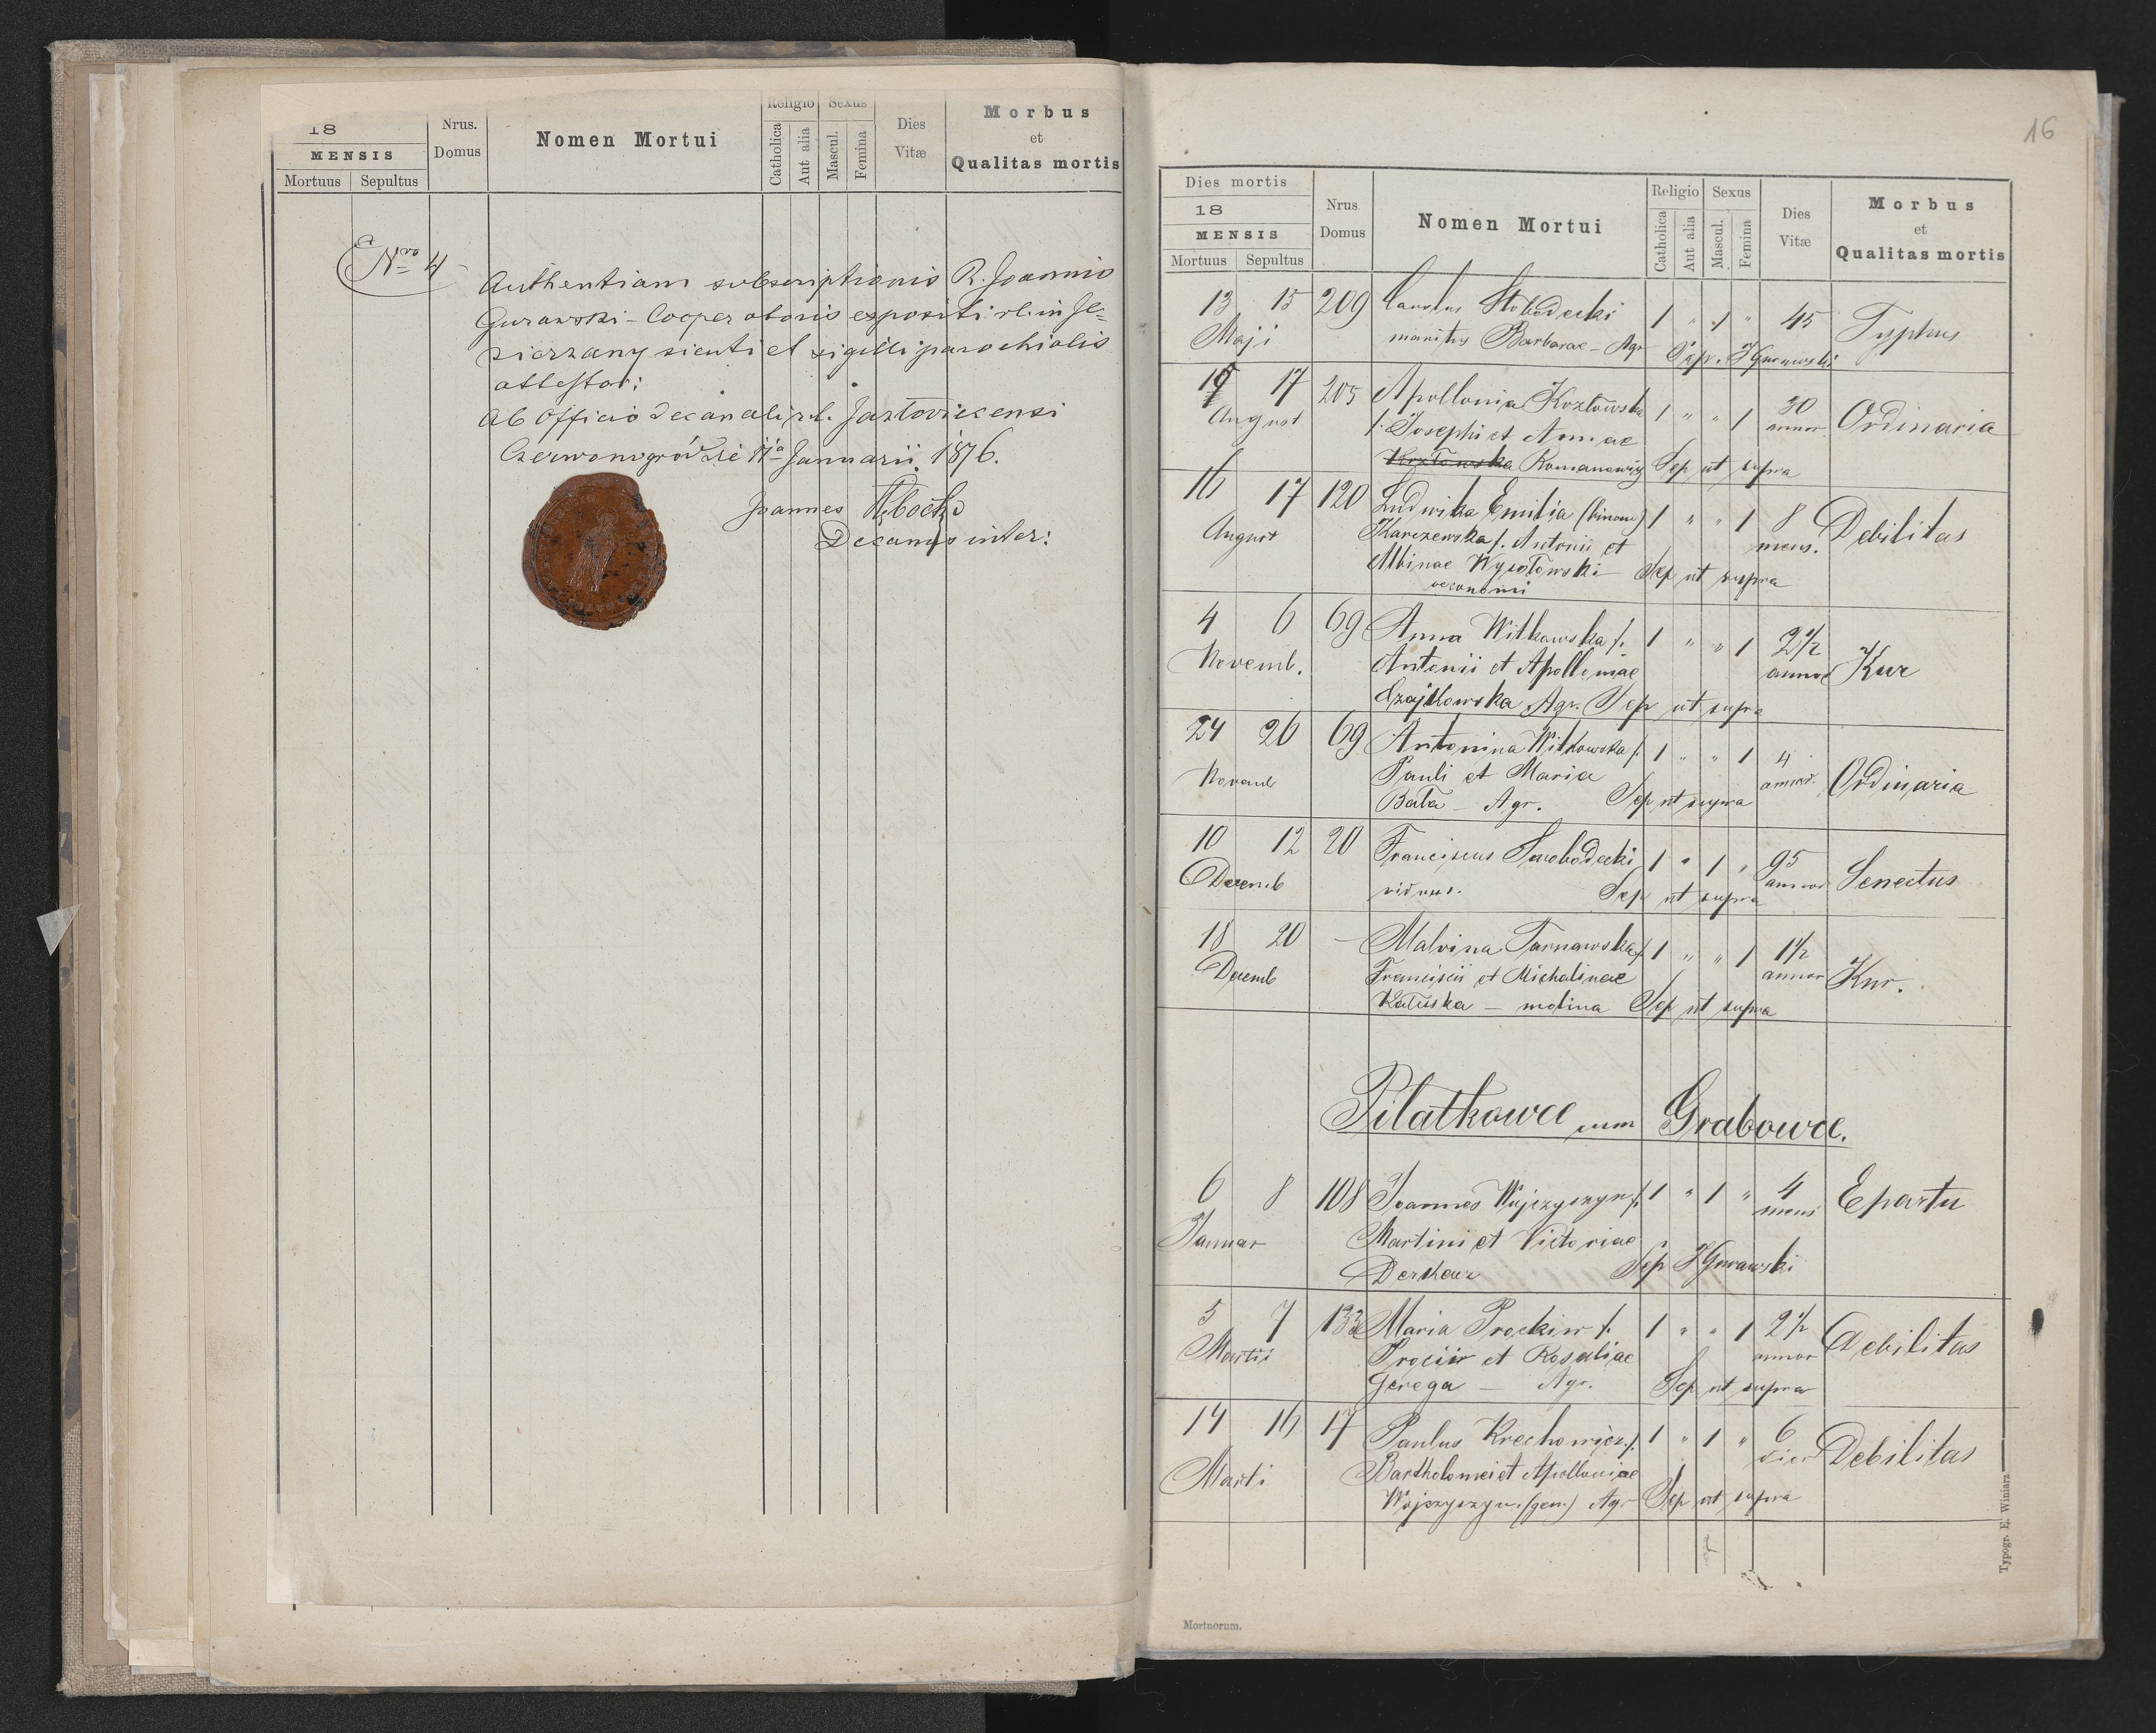 18
MENSIS
Mortuus Sepultus
Nrus.
Domus
Nomen Mortui
Religio Sexus
Catholica
Aut alia
Mascul.
Femina
Dies
Vitæ
Morbus
et
Qualitas mortis
Nro 4
Authentiam subscriptionis R. Joannis
Gurawski - Cooperatoris expositi r. l. in Je=
zierzany sicuti et sigilli parochialis
attestor:
Ab Officio decanali r. l. Jazłoviecensi
Czerwonogródzie 11a Januarii 1876.
Joannes
Decanus inter:
16
Dies mortis
18
MENSIS
Mortuus Sepultus
Nrus.
Domus
Nomen Mortui
Religio Sexus
Catholica
Aut alia
Mascul.
Femina
Dies
Vitæ
Morbus
et
Qualitas mortis
13 15 209 Carolus Słobodecki 1 " 1 " 45 Typhus
Maji maritus Barbarae - Agr Sep. J Gurawski
15 17 205 Apollonia Kozłowska 1 " " 1 30 Ordinaria
August f. Josephi et Annae annor
Kozłowska Romanowicz Sep ut supra
16 17 120 Ludwika Emilia (binom) 1 " " 1 8 Debilitas
August Karczewska f. Antonii et mens.
Albinae Wysotowski Sep ut supra
oeconomi
4 6 69 Anna Witkowska f. 1 " " 1 2 1/2 Kur
Novemb. Antonii et Apolloniae annor
Czajkowska Agr. Sep ut supra
24 26 69 Antonina Witkowska f. 1 " " 1 4 Ordinaria
Novemb Pauli et Maria annor.
Bała - Agr. Sep ut supra
10 12 20 Franciscus Swobodecki 1 " 1 " 95 Senectus
Decemb viduus. annor
Sep ut supra
18 20 - Malvina Tarnawska f. 1 " " 1 1 1/2 Kur.
Decemb Francisci et Michalinae annor
Kaluska - molina Sep ut supra
Piłatkowce cum Grabowce.
6 8 108 Joannes Wojczyszyn f. 1 " 1 " 4 Epartu
Januar Martini et Victoriae mens
Derkacz Sep J Gurawski
5 7 133 Maria Prockiw f. 1 " " 1 2 1/2 Debilitas
Martii Prociir et Rosaliae annor
Gerega - Agr. Sep ut supra
14 16 17 Paulus Krechowicz f. 1 " 1 " 6 Debilitas
Marti Bartholomei et Apolloniae dier
Wojszyszyn (gem.) Agr Sep ut supra
Typogr. E. Winiarz
Mortuorum.